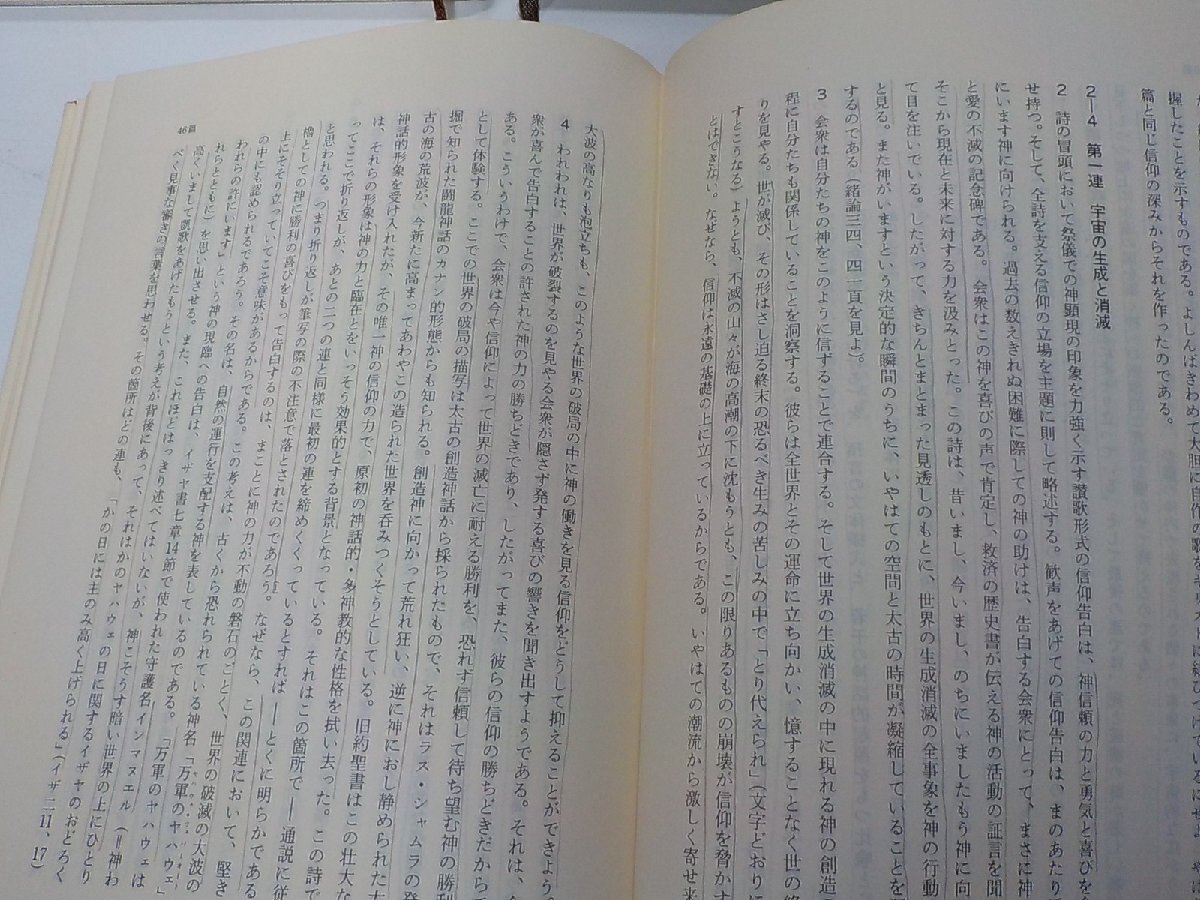 握したことを示すものである。よしんばきわめて大胆に
篇と同じ信仰の深みからそれを作ったのである。
2―4　第一連　宇宙の生成と消滅
2　詩の冒頭において祭儀での神顕現の印象を力強く示す讃歌形式の信仰告白は、神信頼の力と勇気と喜びを
せ持つ。そして、全詩を支える信仰の立場を主題に則して略述する。歓声をあげての信仰告白は、まのあたり
にいます神に向けられる。過去の数えきれぬ困難に際しての神の助けは、告白する会衆にとって、まさに神
と愛の不滅の記念碑である。会衆はこの神を喜びの声で肯定し、救済の歴史書が伝える神の活動の証言を聞
そこから現在と未来に対する力を汲みとった。この詩は、昔いまし、今いまし、のちにいましたもう神に向
て目を注いでいる。したがって、きちんとまとまった見透しのもとに、世界の生成消滅の全事象を神の行動
と見る。また神がいますという決定的な瞬間のうちに、いやはての空間と太古の時間が凝縮していることを
するのである（緒論三四、四一頁を見よ）。
3　会衆は自分たちの神をこのように信ずることで連合する。そして世界の生成消滅の中に現れる神の創造
程に自分たちも関係していることを洞察する。彼らは全世界とその運命に立ち向かい、憶することなく世の終
りを見やる。世が滅び、その形はさし迫る終末の恐るべき生みの苦しみの中で「とり代えられ」（文字どおり
すとこうなる）ようとも、不滅の山々が海の高潮の下に沈もうとも、この限りあるものの崩壊が信仰を脅かす
とはできない。なぜなら、信仰は永遠の基礎の上に立っているからである。いやはての潮流から激しく寄せ来
大波の高なりも泡立ちも、このような世界の破局の中に神の働きを見る信仰をどうして抑えることができよう
4　われわれは、世界が破裂するのを見やる会衆が隠さず発する喜びの響きを聞き出すようである。それは、
衆が喜んで告白することの許された神の力の勝ちどきであり、したがってまた、彼らの信仰の勝ちどきだから
ある。こういうわけで、会衆は今や信仰によって世界の滅亡に耐える勝利を、恐れず信頼して待ち望む神の勝利
として体験する。ここでの世界の破局の描写は太古の創造神話から採られたもので、それはラス・シャムラの発
堀で知られた闘龍神話のカナン的形態からも知られる。創造神に向かって荒れ狂い、逆に神におし静められた太
古の海の荒波が、今新たに高まってあわやこの造られた世界を呑みつくそうとしている。旧約聖書はこの壮大な
神話的形象を受け入れたが、その唯一神の信仰の力で、原初の神話的・多神教的な性格を拭い去った。この詩で
は、それらの形象は神の力と臨在とをいっそう効果的とする背景となっている。それはこの箇所で――通説に従
ってここで折り返しが、あとの二つの連と同様に最初の連を締めくくっているとすれば――とくに明らかである
と思われる。つまり折り返しが筆写の際の不注意で落とされたのであろう。なぜなら、この関連において、堅き
櫓としての神に勝利の喜びをもって告白するのは、まことに神の力が不動の磐石のごとく、世界の破滅の大波の
上にそそり立っていてこそ意味があるからである。この考えは、古くから恐れられている神名「万軍のヤハウェ」
の中にも認められるであろう。その名は、自然の運行を支配する神を表しているのである。「万軍のヤハウェは
われらの許にいます」という神の現臨への告白は、イザヤ書七章14節で使われた守護名インマヌエル（＝神わ
れらとともに）を思い出させる。また、これほどはっきり述べてはいないが、神こそうす暗い世界の上にひとり
高くいまして凱歌をあげたもうという考えが背後にあって、それはかのヤハウェの日に関するイザヤのおどろく
べく見事な審きの言葉を思わせる。その箇所はどの連も、「かの日には主のみ高く上げられる」（イザ二11、17）
46篇